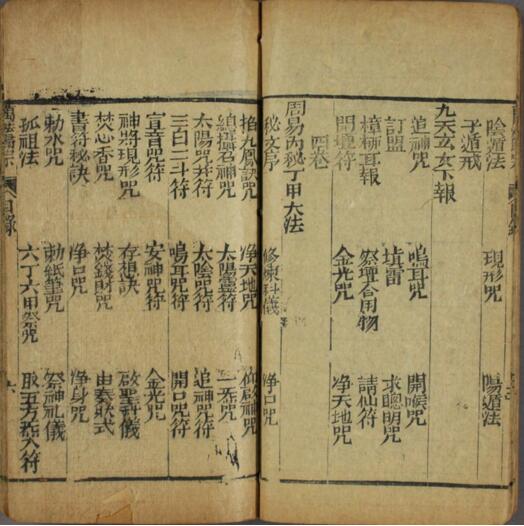 陰遁法 現形咒 陽遁法
子遁戒
九天玄女下報
追神咒 鳴耳咒 開喉咒
訂盟 填雷 求聰明咒
樟柳耳報 祭壇合用物 請仙符
開壇符 金光咒 淨天地咒
四卷
周易內秘丁甲大法
秘文序 修煉科儀 淨口咒
掐九鳳訣咒 淨天地咒 仰啟神咒
總攝召神咒 太陽靈符 一炁咒
太陽咒符 太陰咒符 追神咒符
三台二斗符 鳴耳咒符 開口咒符
宣音咒符 安神咒符 金光咒
神將現形咒 存想訣 啟聖科儀
焚心香咒 焚錢財咒 由奏狀式
書符秘訣 淨口咒 淨身咒
勅水咒 勅紙筆咒 祭神礼儀
孤祖法 六丁六甲祭咒 取五方炁入符
萬法歸宗 目錄 六